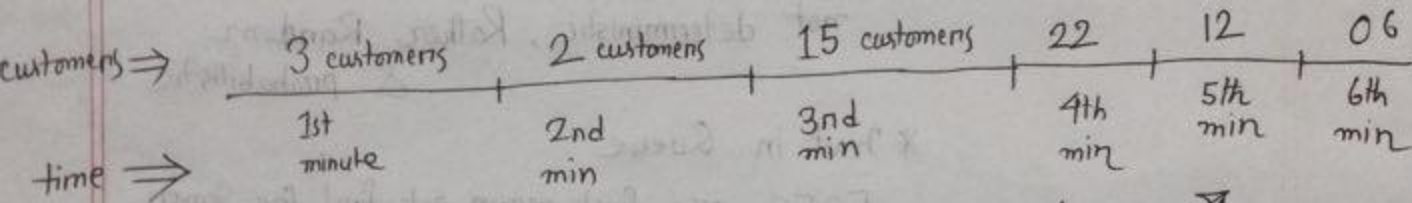 customers ⇒ 3 customers 2 customers 15 customers 22 12 06
time ⇒ 1st minute 2nd min 3nd min 4th min 5th min 6th min